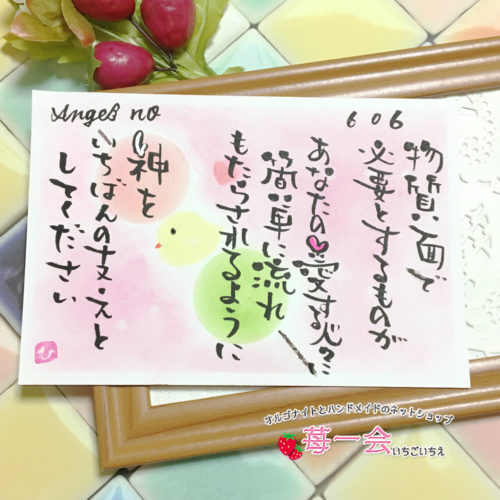 Angel no
606
物質面で
必要とするものが
あなたの愛する人々に
簡単に流れ
もたらされるように
神を
いちばんの支えと
してください
オルゴナイトとハンドメイドのネットショップ
苺一会いちごいちえ